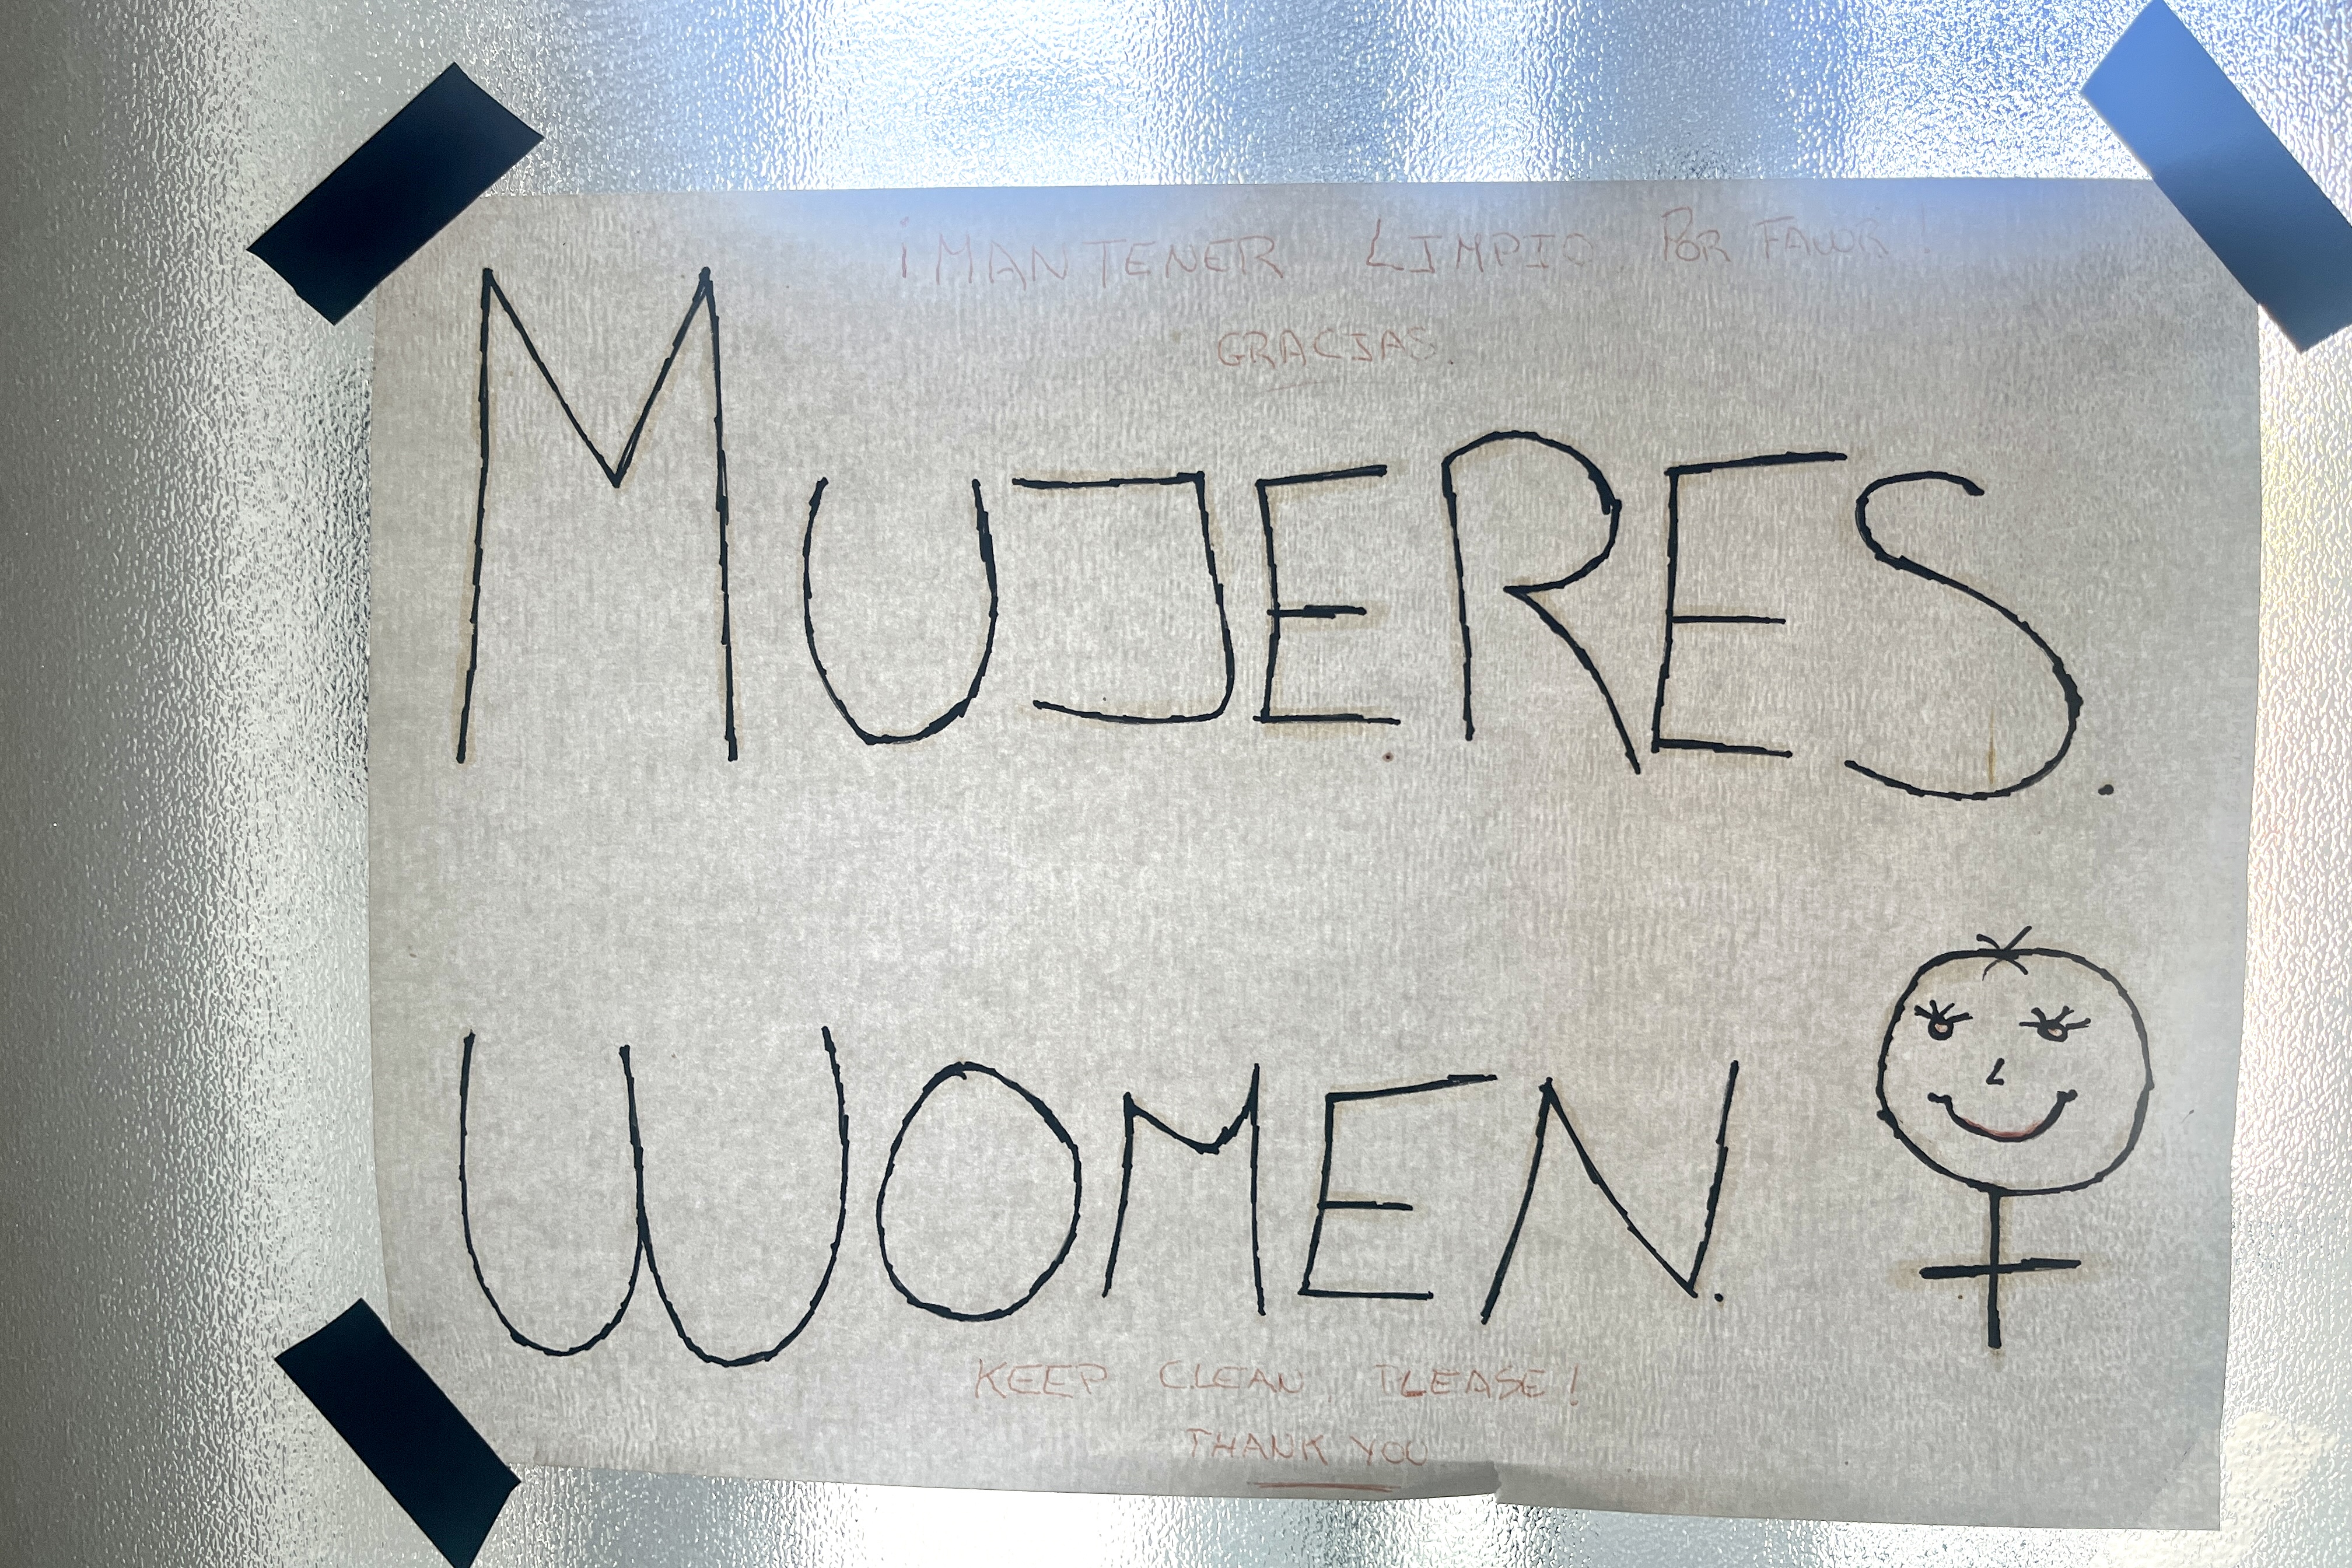 ¡MANTENER LIMPIO POR FAVOR!
GRACIAS
MUJERES.
WOMEN.
KEEP CLEAN, PLEASE!
THANK YOU